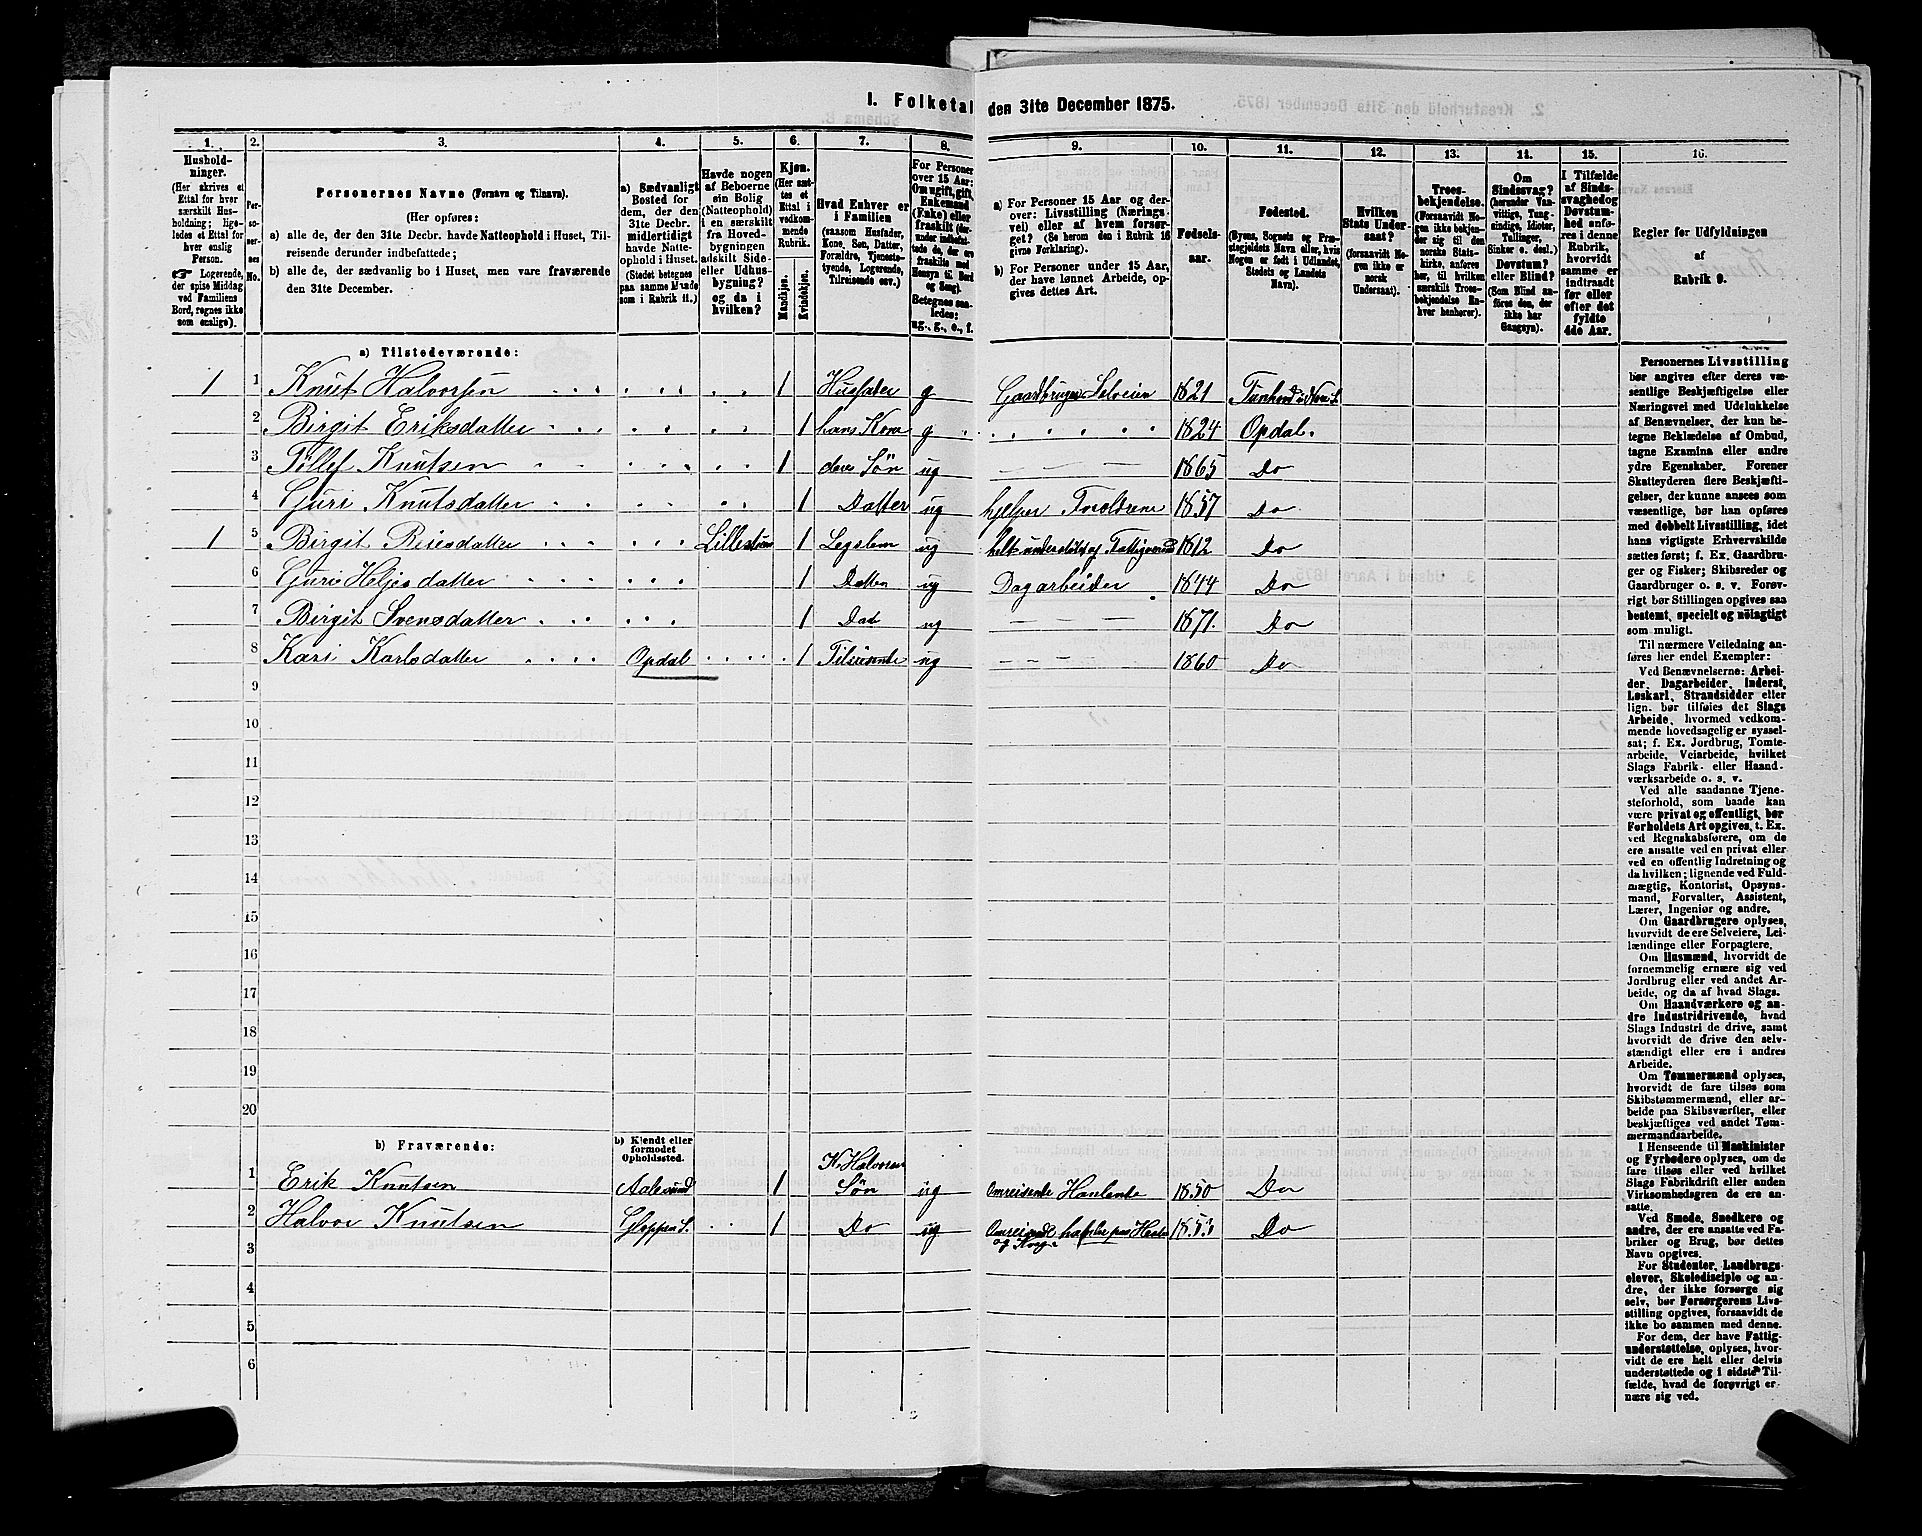 I. Folketal den 31te December 1875.
1. 2. 3. 4. 5. 6. 7. 8. 9. 10. 11. 12. 13. 14. 15. 16.
Husholdninger.
(Her skrives et Ettal for hver særskilt Husholdning; ligeledes et Ettal for hver enslig Person.
☞ Logerende, der spise Middag ved Familiens Bord, regnes ikke som enslige).
Personernes No.
Personernes Navne (Fornavn og Tilnavn).
(Her opføres:
a) alle de, der den 31te Decbr. havde Natteophold i Huset, Tilreisende derunder indbefattede;
b) alle de, der sædvanlig bo i Huset, men vare fraværende den 31te December.
a) Sædvanligt Bosted for dem, der den 31te Decbr. midlertidigt havde Natteophold i Huset.
(Stedet betegnes paa samme Maade som i Rubrik 11.)
Havde nogen af Beboerne sin Bolig (Natteophold) i en særskilt fra Hovedbygningen adskilt Side- eller Udhusbygning? og da i hvilken?
Kjøn. (Her sættes et Ettal i vedkommende Rubrik.
Mandkjøn. Kvindekjøn.
Hvad Enhver er i Familien
(saasom Husfader, Kone, Søn, Datter, Forældre, Tjenestetyende, Logerende, Tilreisende osv.)
For Personer over 15 Aar: Om ugift, gift, Enkemand (Enke) eller fraskilt
Betegnes saaledes: ug., g., e., f.
a) For Personer 15 Aar og derover: Livsstilling (Næringsvei) eller af hvem forsørget? (Se herom den i Rubrik 16 givne Forklaring).
b) For Personer under 15 Aar, der have lønnet Arbeide, opgives dettes Art.
Fødselsaar.
Fødested.
(Byens, Sognets og Præstegjeldets Navn eller, hvis Nogen er født i Udlandet, Stedets og Landets Navn).
Hvilken Stats Undersaat?
(forsaavidt Nogen ikke er norsk Undersaat).
Troesbekjendelse.
(Forsaavidt Nogen ikke bekjender sig til den norske Statskirke, anføres her, til hvilken særskilt Troesbekjendelse Enhver henhører).
Om Sindssvag? (herunder Vanvittige, Tungsindige, Idioter, Tullinger, Sinker o. desl.) Døvstum? eller Blind? (Som Blind anføres den, der ikke har Gangsyn).
I Tilfælde af Sindssvaghed og Døvstumhed anføres i denne Rubrik, hvorvidt samme er indtraadt før eller efter det fyldte 4de Aar.
Regler for Udfyldningen af Rubrik 9.
a) Tilstedeværende:
1 1 Knut Halvorsen 1 Husfader g Gaardbruger Selveier 1821
2 Birgit Eriksdatter 1 hans Kone g 1824 Opdal.
3 Tøllef Knutsen 1 deres Søn ug 1865 Do
4 Guri Knutsdatter 1 Datter ug hjelper Forældrene 1857 Do
1 5 Birgit 1 Logslem ug helt understøttet af Fattigvæsen 1812 Do
6 Guri Heljesdatter 1 Datter ug Dagarbeider 1844 Do
7 Birgit Svensdatter 1 ug 1871. Do
8 Kari Karlsdatter Opdal 1 Tilreisende ug 1860 Do
9
10
11
12
13
14
15
16
17
18
19
20
b) Fraværende: b) Kjendt eller formodet Opholdssted.
K. Halvorsen
1 Erik Knutsen Aalesund 1 Søn ug Omreisende 1850 Do
2 Halvor Knutsen 1 Do ug Omreisende 1853 Do
3
4
5
6
Personernes Livsstilling bør angives efter deres væsentlige Beskjæftigelse eller Næringsvei med Udelukkelse af Benævnelser, der kun betegne Beklædelse af Ombud, tagne Examina eller andre ydre Egenskaber. Forener Skatteyderen flere Beskjæftigelser, der kunne ansees som væsentlige, bør han opføres med dobbelt Livsstilling, idet hans vigtigste Erhvervskilde sættes først; f. Ex. Gaardbruger og Fisker; Skibsreder og Gaardbruger o. s. v. Forøvrigt bør Stillingen opgives saa bestemt, specielt og nøiagtigt som muligt.
Til nærmere Veiledning anføres her endel Exempler:
Ved Benævnelserne: Arbeider, Dagarbeider, Inderst, Løskarl, Strandsidder eller lign. bør tilføies det Slags Arbeide, hvormed vedkommende hovedsagelig er sysselsat; f. Ex. Jordbrug, Tomtearbeide, Veiarbeide, hvilket Slags Fabrik- eller Haandværksarbeide o. s. v.
Ved alle saadanne Tjenesteforhold, som baade kan være privat og offentligt, bør Forholdets Art opgives, t. Ex. ved Regnskabsførere, om de ere ansatte ved en privat eller ved en offentlig Indretning og da hvilken; lignende ved Fuldmægtig, Kontorist, Opsynsmand, Forvalter, Assistent, Lærer, Ingeniør og andre.
Om Gaardbrugere oplyses, hvorvidt de ere Selveiere, Leilændinge eller Forpagtere.
Om Husmænd, hvorvidt de fornemmelig ernære sig ved Jordbrug eller ved andet Arbeide, og da af hvad Slags.
Om Haandværkere og andre Industridrivende, hvad Slags Industri de drive, samt hvorvidt de drive den selvstændigt eller ere i andres Arbeide.
Om Tømmermænd oplyses, hvorvidt de fare tilsøs som Skibstømmermænd, eller arbeide paa Skibsværfter, eller beskjæftiges ved andet Tømmermandsarbeide.
I Henseende til Maskinister og Fyrbødere oplyses, om de fare tilsøs eller ved hvilket Slags Fabrikdrift eller anden Virksomhedsgren de ere ansatte.
Ved Smede, Snedkere og andre, der ere ansatte ved Fabriker og Brug, bør dettes Navn opgives.
For Studenter, Landbrugselever, Skoledisciple og andre, der ikke forsørge sig selv, bør Forsørgerens Livsstilling opgives, forsaavidt de ikke bo sammen med denne.
For dem, der have Fattigunderstøttelse, oplyses, hvorvidt de ere helt eller delvis understøttede og i sidste Tilfælde, hvad de forøvrigt ernære sig ved.